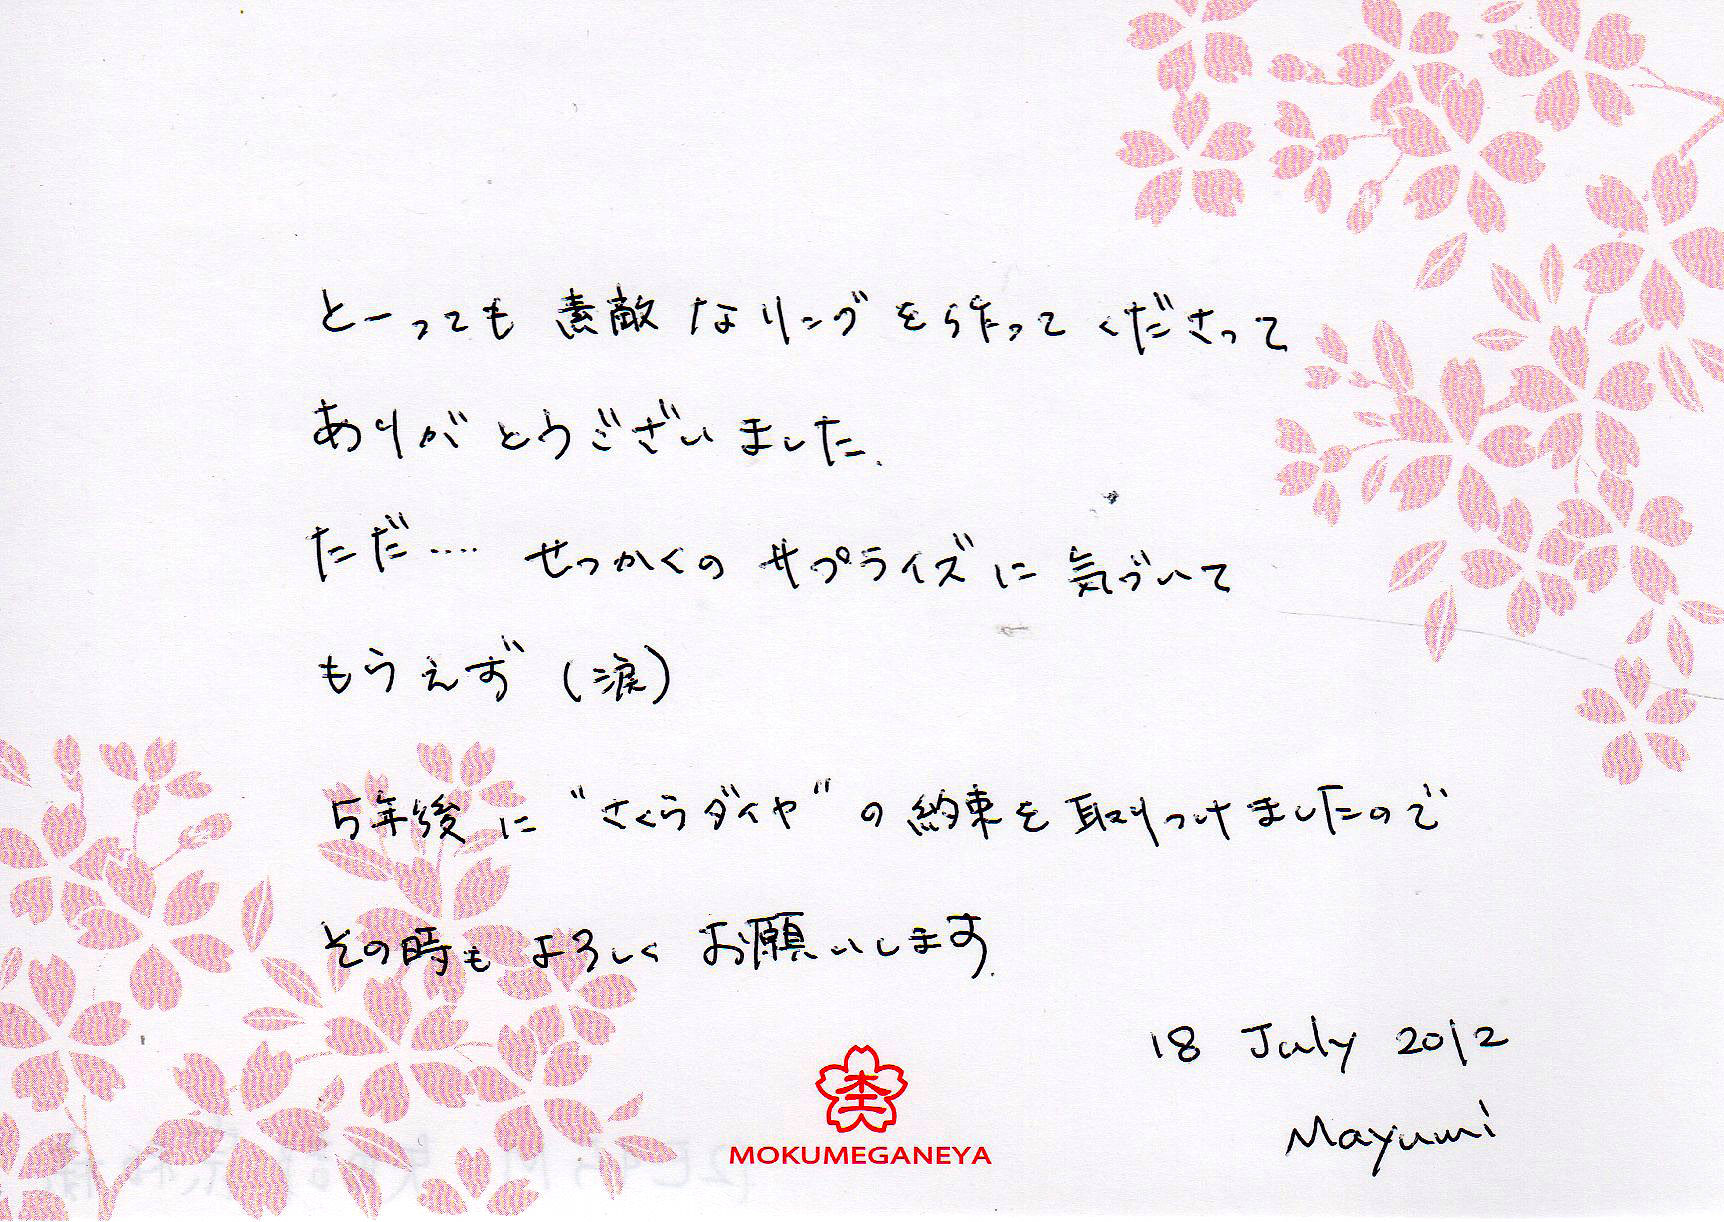 とーっても 素敵なリングを作ってくださって
ありがとうございました.
ただ‥‥ せっかくの サプライズに 気づいて
もらえず (涙)
5年後に "さくらダイヤ" の約束を取りつけましたので
その時も よろしく お願いします.
18 July 2012
Mayumi
MOKUMEGANEYA